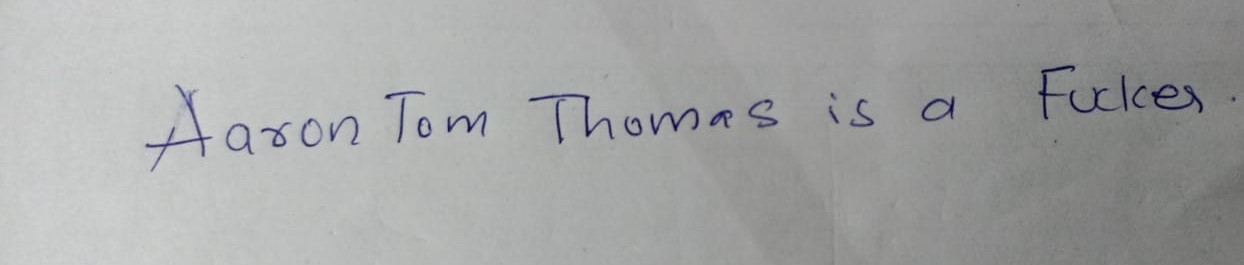 Aaron Tom Thomas is a Fucker.